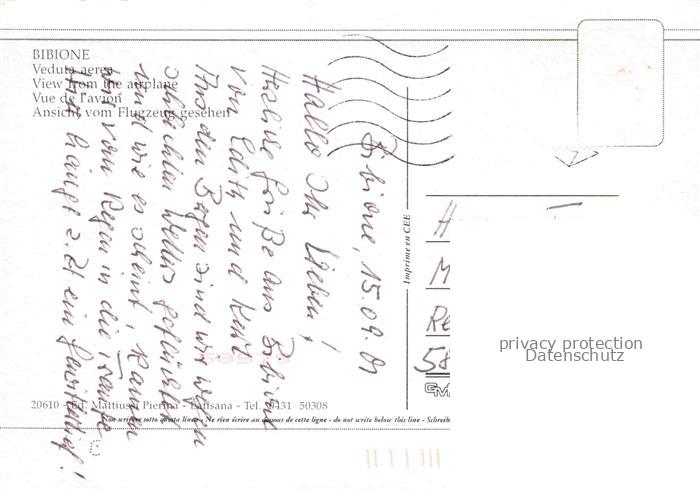 BIBIONE
Veduta aerea
View from the airplane
Vue de l'avion
Ansicht vom Flugzeug gesehen
Bibione, 15.09.01
Hallo Ihr Lieben!
Herzliche Grüße aus Bibione
von Edith und Karl
Aus den Bergen sind wir wegen
schlechten Wetters geflüchtet
und wie es scheint, kamen
wir vom Regen in die Traufe
hängt z.Zt ein
Imprimé en CEE
H
M
Re
58
privacy protection
Datenschutz
20610 - Ed. Mattiussi Pierina - Latisana - Tel. 0431 50308
Non scrivere sotto questa linea - Ne rien écrire au dessous de cette ligne - do not write below this line - Schreib